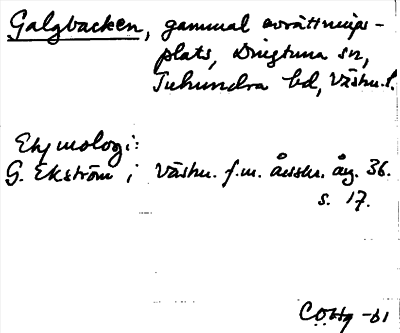 Galgbacken, gammal avrättnings-
plats, Dingtuna sn,
Tuhundra hd, Västm. l.
Etymologi:
G. Ekström i Västm. f.m. årsskr. årg. 36.
s. 17.